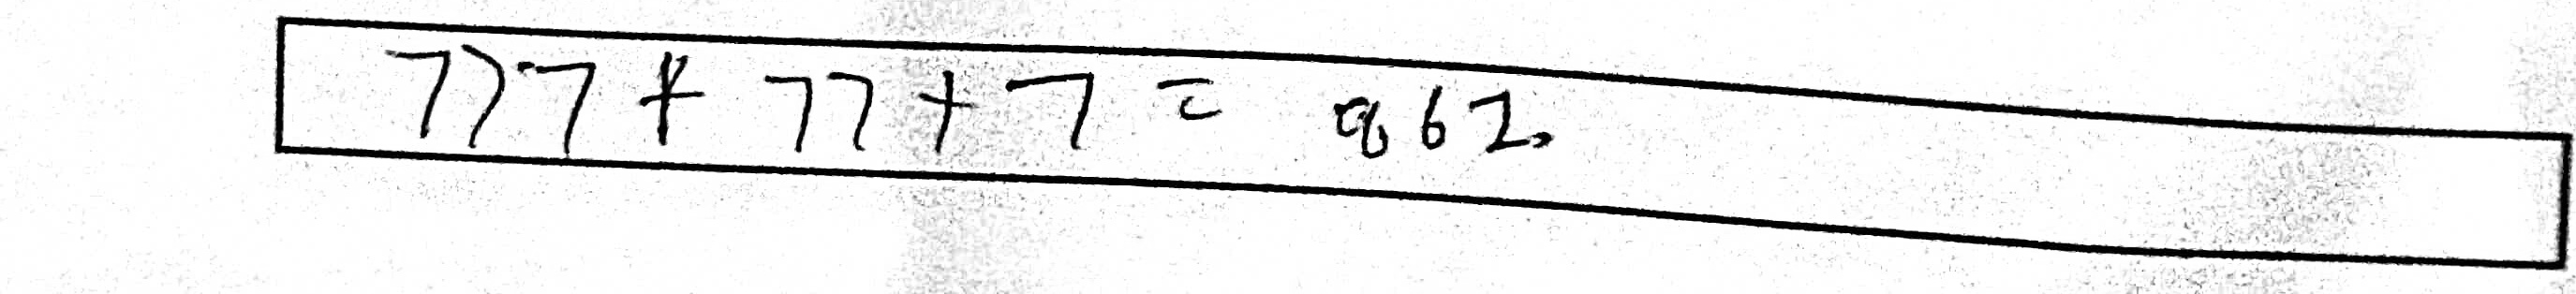 777 + 77 + 7 = 862.